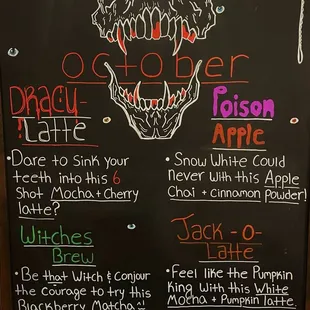 October
Dracu-
Latte
• Dare to Sink your
teeth into this 6
Shot Mocha + Cherry
latte?
Witches
Brew
• Be that Witch & Conjure
the Courage to try this
Blackberry Matcha!
Poison
Apple
• Snow White Could
never With this Apple
Chai + cinnamon Powder!
Jack-O-
Latte
• Feel like the Pumpkin
King with this White
Mocha + Pumpkin latte.